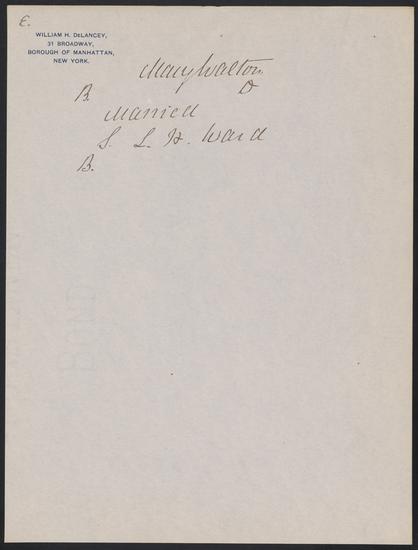 E.
WILLIAM H. DeLANCEY,
31 BROADWAY,
BOROUGH OF MANHATTAN,
NEW YORK.
Mary Walton
B. D
Married
S. L. H. Ward
B.